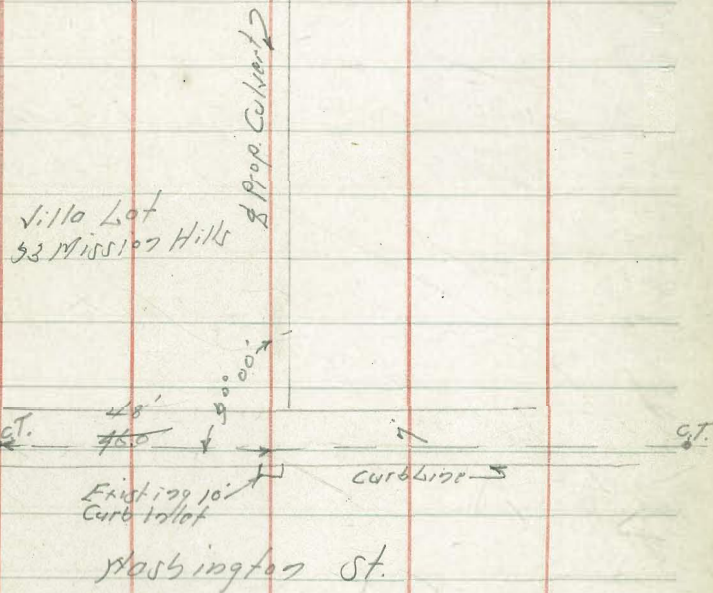 ℄ Prop. Culvert
Villa Lot
33 Mission Hills
90°00'
48'
46.0
C.T.
7
C.T.
Existing 10'
Curb Inlet
Curb Line
Washington St.